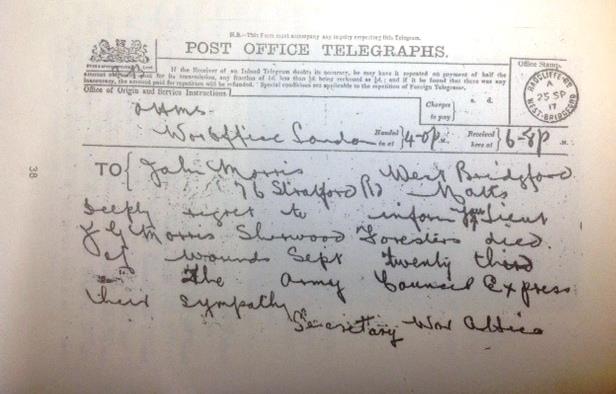 N.B.—This Form must accompany any inquiry respecting this Telegram.
POST OFFICE TELEGRAPHS.
If the Receiver of an Inland Telegram doubts its accuracy, he may have it repeated on payment of half the
amount originally paid for its transmission, any fraction of 1d. less than ½d. being reckoned as ½d.; and if it be found that there was any
inaccuracy, the amount paid for repetition will be refunded. Special conditions are applicable to the repetition of Foreign Telegrams.
Office of Origin and Service Instructions.
Charges to pay
s. d.
Office Stamp.
RADCLIFFE RD
A
25 SP
17
WEST-BRIDGFORD
OHMS
War Office London
Handed in at 4-0 P.M.
Received here at 6-8 P.M.
TO John Morris West Bridgford
76 Stratford Rd Notts
Deeply regret to inform you Lieut
J G Morris Sherwood Foresters died
of wounds Sept twenty third
The Army Council Express
their sympathy
Secretary War Office
38